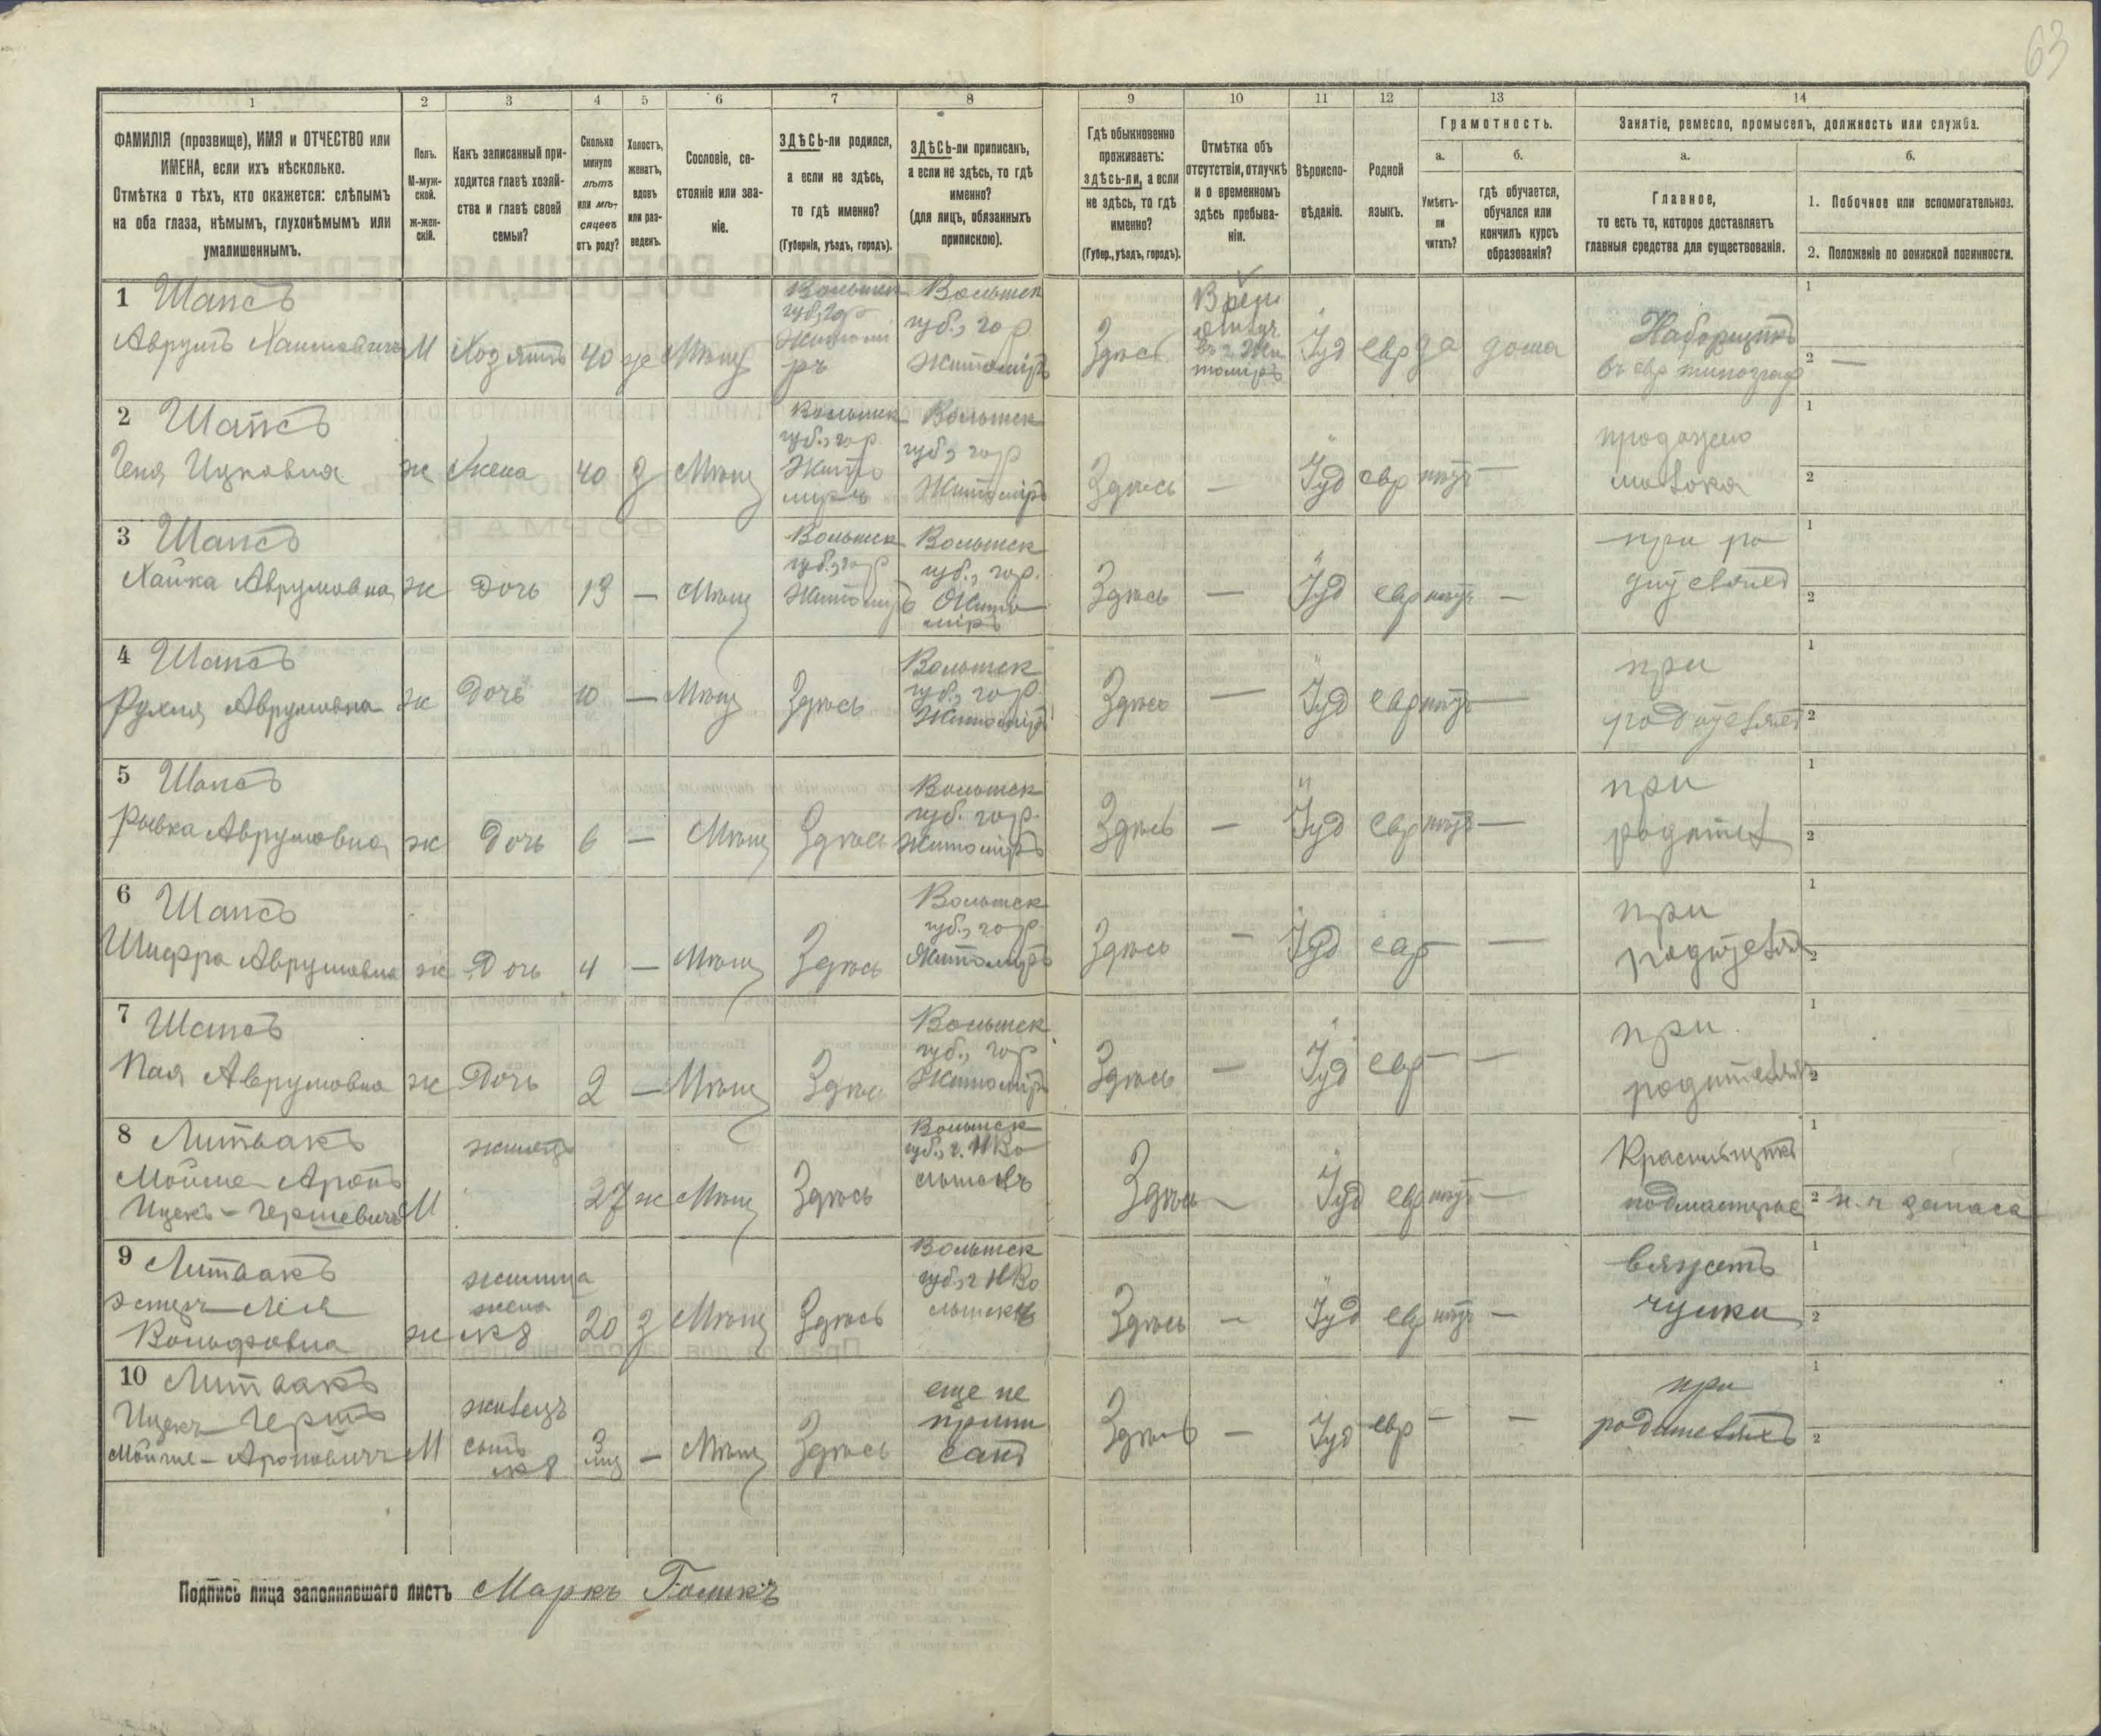 63
1 2 3 4 5 6 7 8 9 10 11 12 13 14
ФАМИЛІЯ (прозвище), ИМЯ и ОТЧЕСТВО или
ИМЕНА, если ихъ нѣсколько.
Отмѣтка о тѣхъ, кто окажется: слѣпымъ
на оба глаза, нѣмымъ, глухонѣмымъ или
умалишеннымъ.
Полъ.
М-муж-
ской.
ж-жен-
скій.
Какъ записанный при-
ходится главѣ хозяй-
ства и главѣ своей
семьи?
Сколько
минуло
лѣтъ
или мѣ-
сяцевъ
отъ роду?
Холостъ,
женатъ,
вдовъ
или раз-
веденъ.
Сословіе, со-
стояніе или зва-
ніе.
ЗДѢСЬ-ли родился,
а если не здѣсь,
то гдѣ именно?
(Губернія, уѣздъ, городъ).
ЗДѢСЬ-ли приписанъ,
а если не здѣсь, то гдѣ
именно?
(для лицъ, обязанныхъ
припискою).
Гдѣ обыкновенно
проживаетъ:
здѣсь-ли, а если
не здѣсь, то гдѣ
именно?
(Губер., уѣздъ, городъ).
Отмѣтка объ
отсутствіи, отлучкѣ
и о временномъ
здѣсь пребыва-
ніи.
Вѣроиспо-
вѣданіе.
Родной
языкъ.
Грамотность.
а.
Умѣетъ-
ли
читать?
б.
гдѣ обучается,
обучался или
кончилъ курсъ
образованія?
Занятіе, ремесло, промыселъ, должность или служба.
а.
Главное,
то есть то, которое доставляетъ
главныя средства для существованія.
б.
1. Побочное или вспомогательное.
2. Положеніе по воинской повинности.
1 Шапсъ
Аврумъ
М 40 Мѣщ
Волынск
губ., гор
Житомі
ръ
Волынск
губ., гор
Житоміръ
Здѣсь
Врем
въ г. Жи
томіръ
Іуд евр да дома
Наборщикъ
въ евр типограф
1
2 —
2 Шапсъ
Геня Ицковна ж Жена 40 З Мѣщ
Волынск
губ., гор.
Жито
миръ
Волынск
губ., гор
Житоміръ
Здѣсь — Іуд евр нѣтъ —
продажею
молока
1
2
3 Шапсъ
Хайка Аврумовна ж Дочь 19 — Мѣщ
Волынск
губ., гор
Житоміръ
Волынск
губ., гор.
Жито
міръ
Здѣсь — Іуд евр нѣтъ —
при ро
1
2
4 Шапсъ
Рухля Аврумовна ж Дочь 10 — Мѣщ Здѣсь
Волынск
губ., гор.
Житоміръ
Здѣсь — Іуд евр нѣтъ —
при
1
2
5 Шапсъ
Рывка Аврумовна ж Дочь 6 — Мѣщ Здѣсь
Волынск
губ. гор.
Житоміръ
Здѣсь — Іуд евр нѣтъ —
при
1
2
6 Шапсъ
Шифра Аврумовна ж Дочь 4 — Мѣщ Здѣсь
Волынск
губ., гор.
Житоміръ
Здѣсь — Іуд евр —
при
1
2
7 Шапсъ
Аврумовна ж Дочь 2 — Мѣщ Здѣсь
Волынск
губ., гор
Житоміръ
Здѣсь — Іуд евр —
при
родителяхъ
1
2
8 Литвакъ
Мойше-Аронъ
Ицекъ-Гершевичъ М
жилецъ
27 ж Мѣщ Здѣсь
Волынск
губ., г. НВо
лынскъ
Здѣсь — Іуд евр нѣтъ —
Красильщикъ
подмастерье
1
2 н. ч запаса
9 Литвакъ
Эстеръ-Лея
Вольфовна ж
жилица
жена
№8
20 З Мѣщ Здѣсь
Волынск
губ., г НВо
лынскъ
Здѣсь — Іуд евр нѣтъ —
вяжетъ
чулки
1
2
10 Литвакъ
Ицекъ-Гершъ
Мойше-Ароновичъ М
жилецъ
сынъ
№8
3
мц — Мѣщ Здѣсь
еще не
припи
санъ
Здѣсь — Іуд евр — —
при
родителяхъ
1
2
Подпись лица заполнявшаго листъ Маркъ